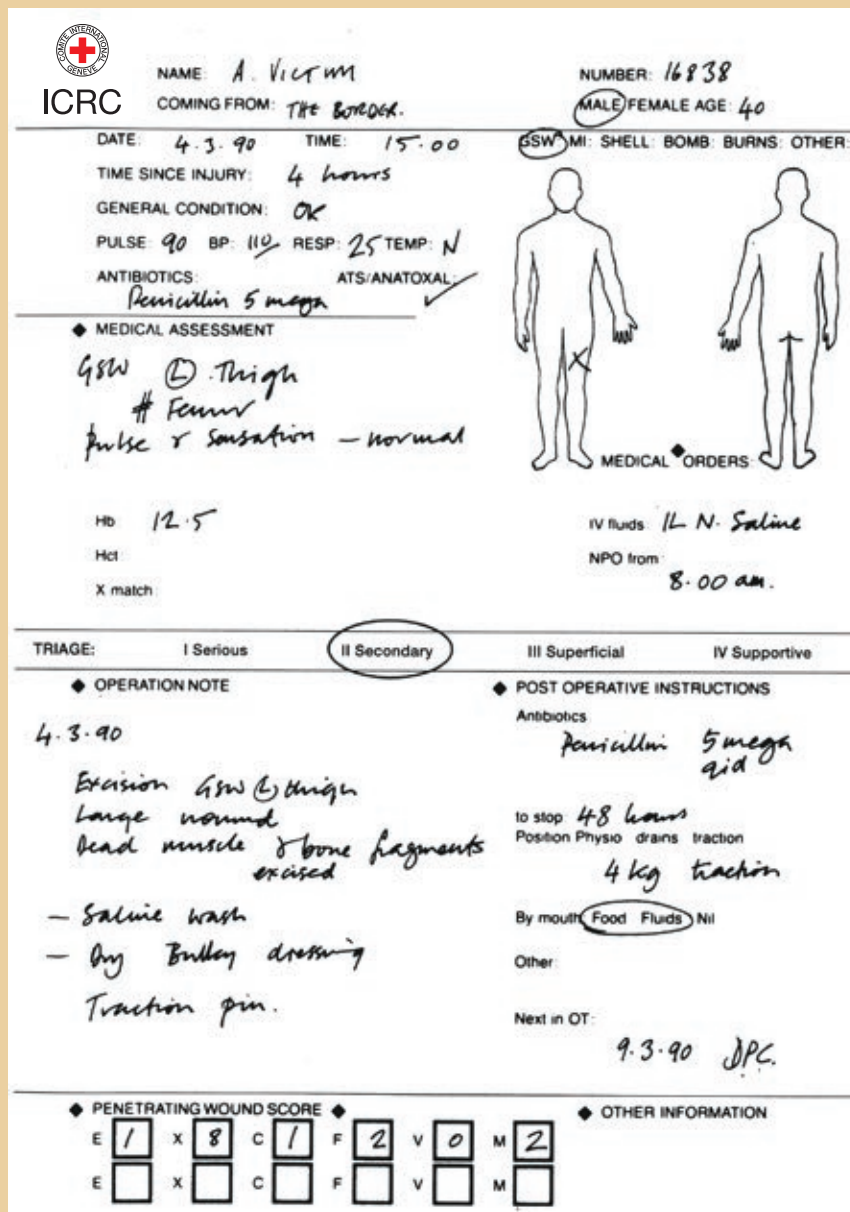 COMITE INTERNATIONAL GENEVE
ICRC
NAME: A. VICTIM NUMBER: 16838
COMING FROM: THE BORDER. MALE/FEMALE AGE: 40
DATE: 4.3.90 TIME: 15.00 GSW: MI: SHELL: BOMB: BURNS: OTHER:
TIME SINCE INJURY: 4 hours
GENERAL CONDITION: OK
PULSE: 90 BP: 110/ RESP: 25 TEMP: N
ANTIBIOTICS: ATS/ANATOXAL: ✓
Penicillin 5 mega
◆ MEDICAL ASSESSMENT
GSW (L) Thigh
# Femur
Pulse & Sensation - normal
MEDICAL ◆ ORDERS:
Hb 12.5 IV fluids 1L N. Saline
Hct: NPO from:
8.00 am.
X match:
TRIAGE: I Serious II Secondary III Superficial IV Supportive
◆ OPERATION NOTE ◆ POST OPERATIVE INSTRUCTIONS
4.3.90
Excision GSW (L) thigh
Large wound
Dead muscle & bone fragments
excised
- Saline wash
- Dry Bulky dressing
Traction pin.
Antibiotics
Penicillin 5 mega
qid
to stop 48 hours
Position Physio drains traction
4 kg traction
By mouth: Food Fluids Nil
Other:
Next in OT:
9.3.90 DPC.
◆ PENETRATING WOUND SCORE ◆ ◆ OTHER INFORMATION
E 1 X 8 C 1 F 2 V 0 M 2
E X C F V M